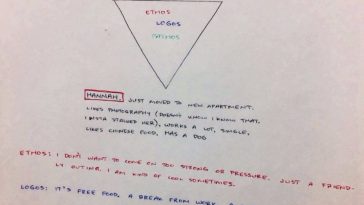 ETHOS
LOGOS
PATHOS
HANNAH: JUST MOVED TO NEW APARTMENT.
LIKES PHOTOGRAPHY (DOESN'T KNOW I KNOW THAT.
I INSTA STALKED HER), WORKS A LOT, SINGLE,
LIKES CHINESE FOOD, HAS A DOG
ETHOS: I DON'T WANT TO COME ON TOO STRONG OR PRESSURE. JUST A FRIEND-
LY OUTING. I AM KIND OF COOL SOMETIMES.
LOGOS: IT'S FREE FOOD, A BREAK FROM WORK,